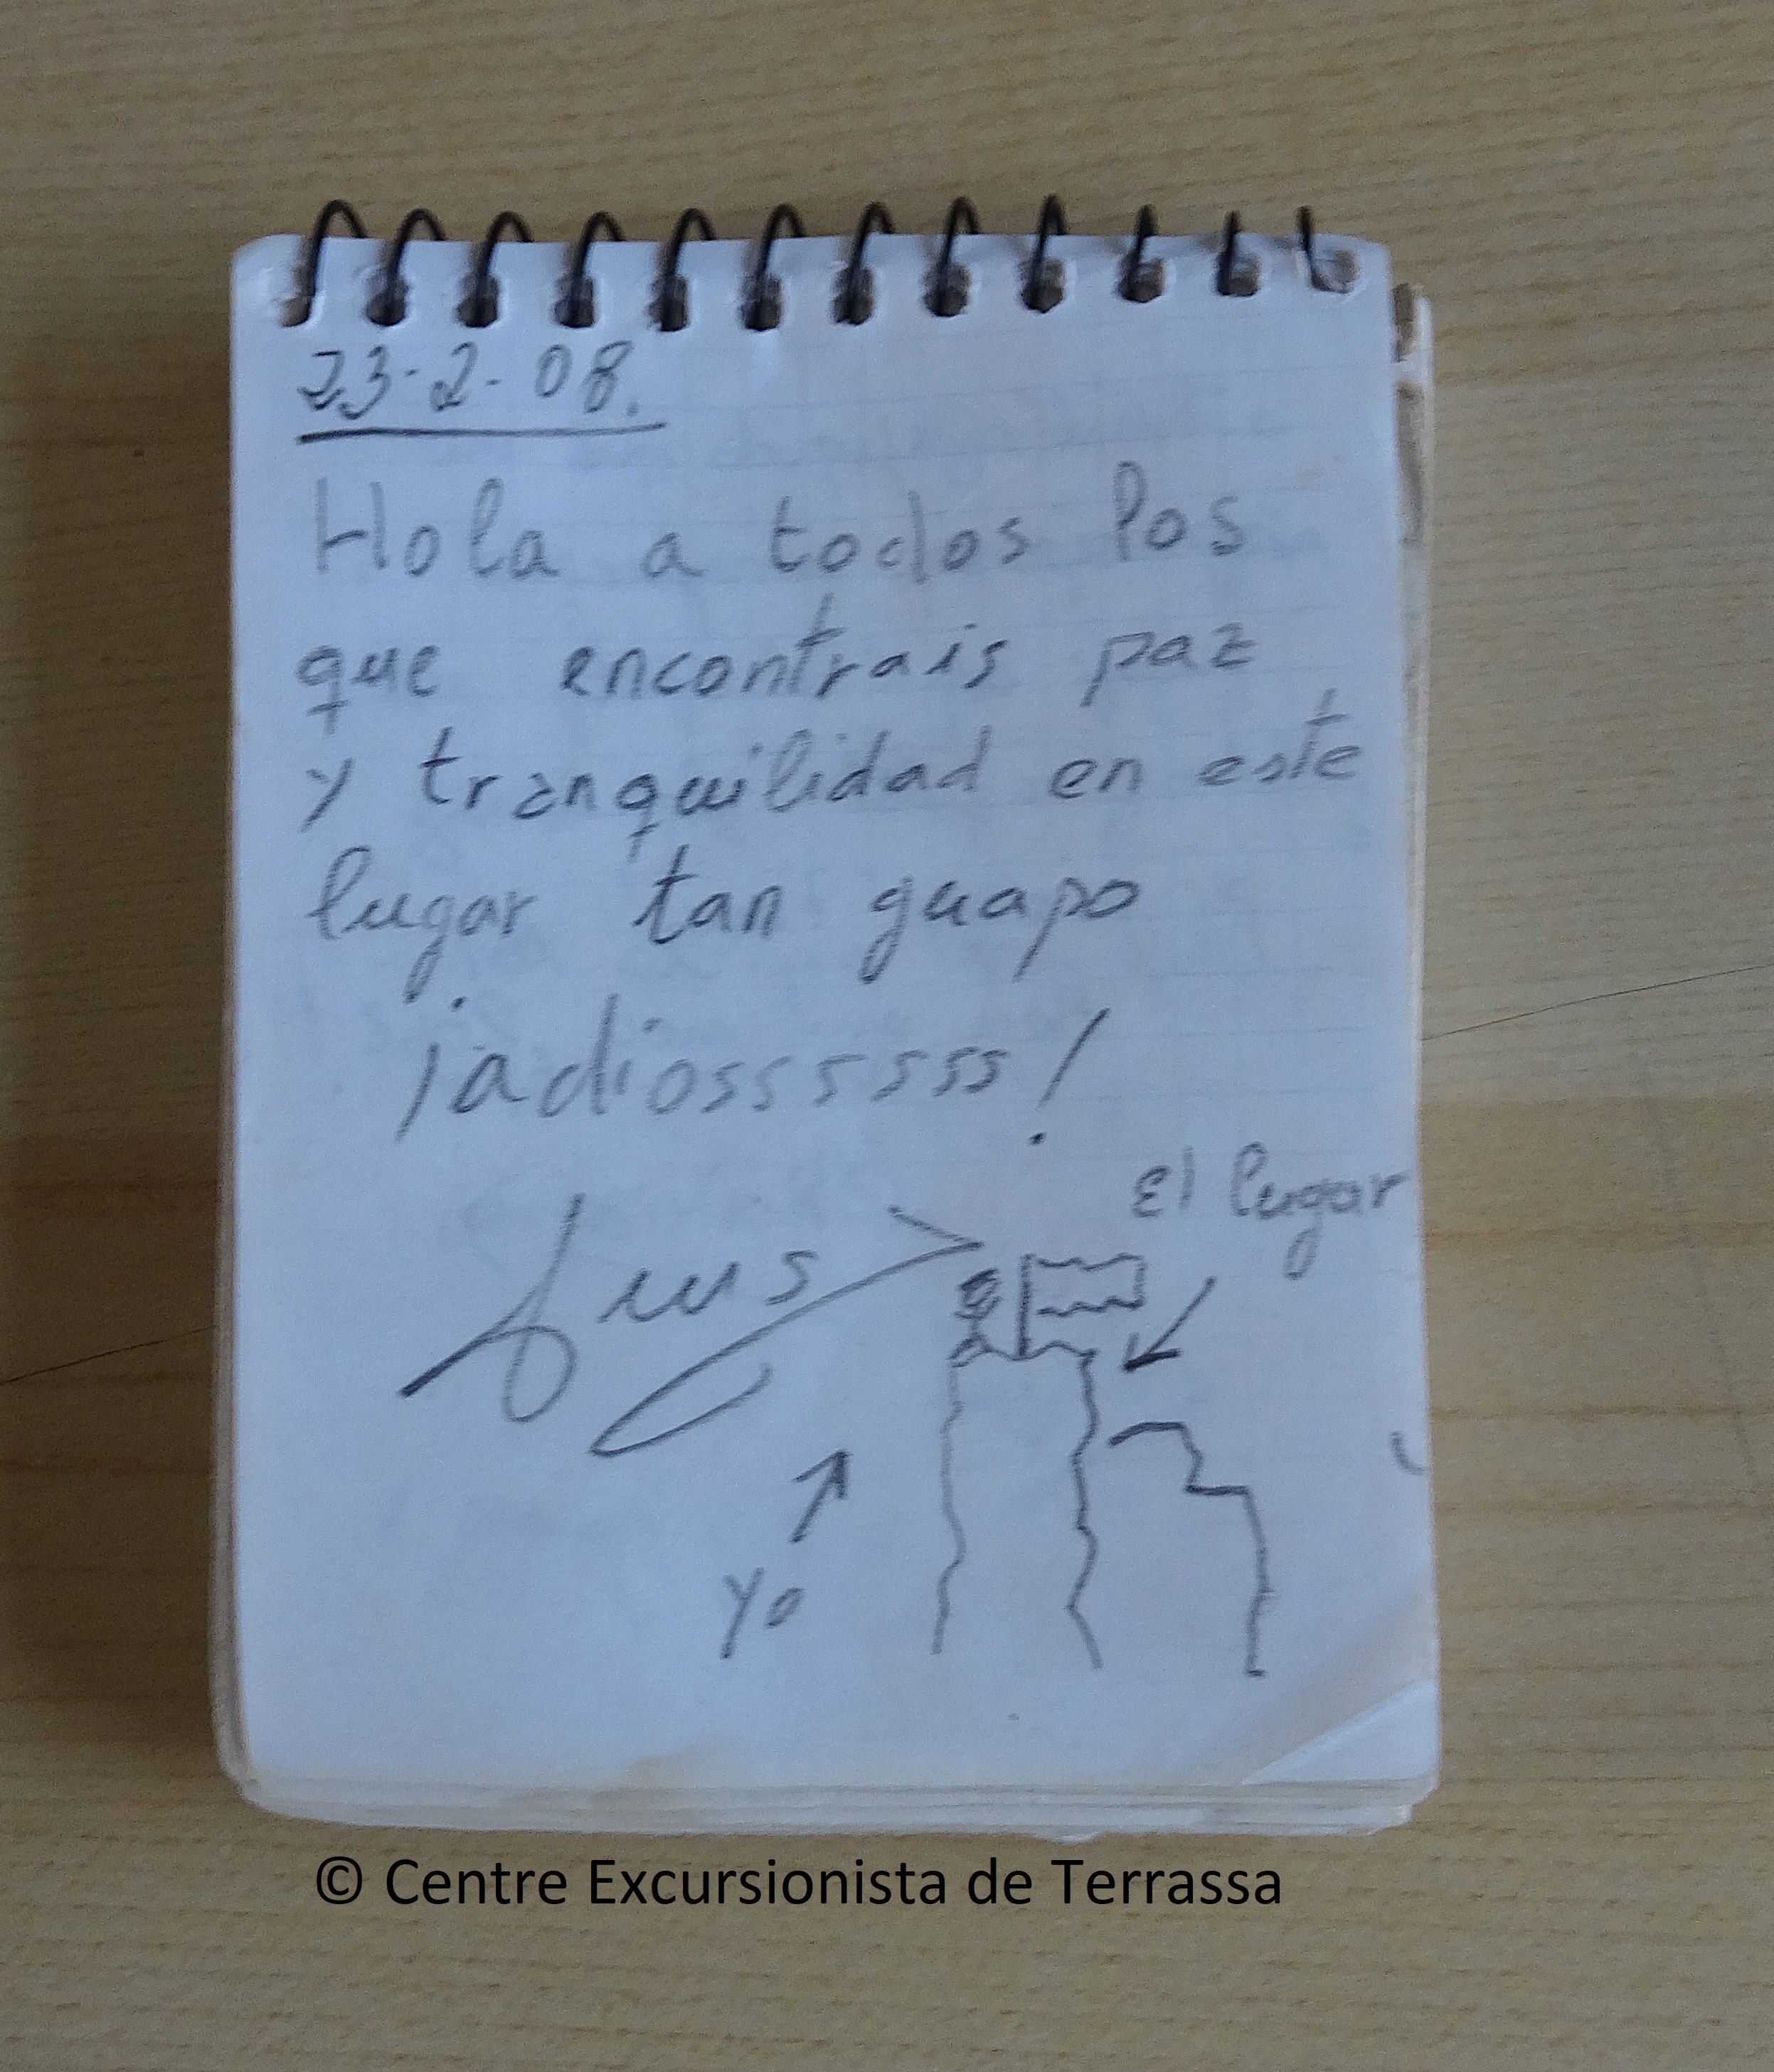 23-2-08.
Hola a todos los
que encontrais paz
y tranquilidad en este
lugar tan guapo
¡adiosssssss!
El lugar
yo
© Centre Excursionista de Terrassa